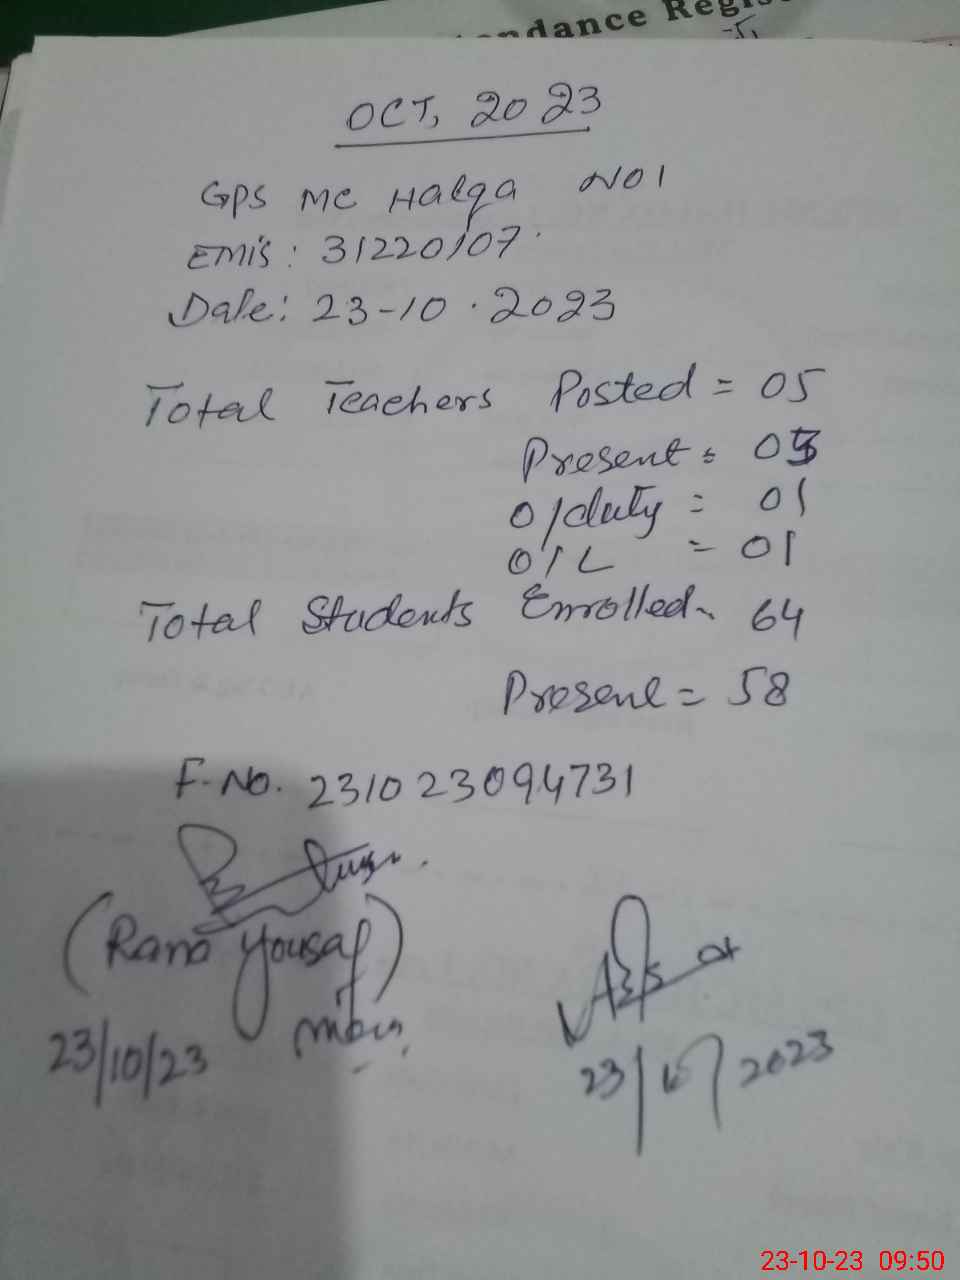 ndance Regis
OCT, 2023
GPS MC Halqa NO1
EMIS: 31220107
Date: 23-10.2023
Total Teachers Posted = 05
Present = 03
O/duty = 01
O/L = 01
Total Students Enrolled 64
Present = 58
F.No. 231023094731
(Rana Yousaf)
23/10/23
23/10/2023
23-10-23 09:50